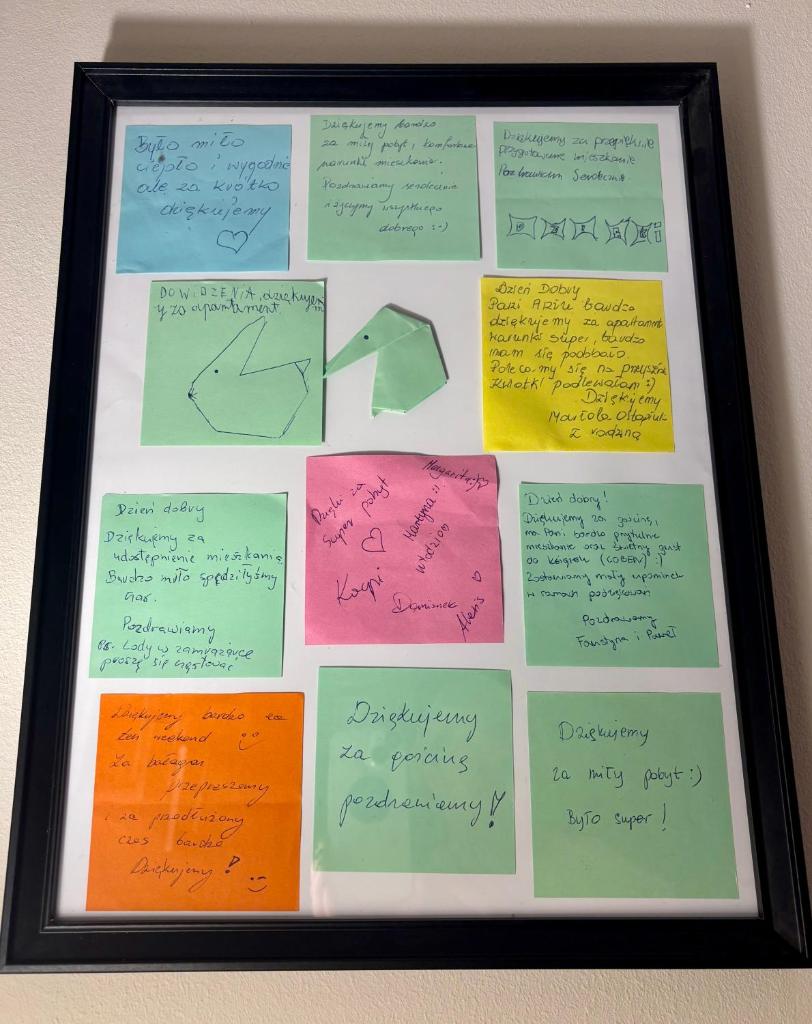 Było miło
ciepło i wygodnie
ale za krótko
dziękujemy
Dziękujemy bardzo
za miły pobyt, komfortowe
warunki mieszkania.
Pozdrawiamy serdecznie
i życzymy wszystkiego
dobrego :-)
Dziękujemy za przepięknie
przygotowane mieszkanie
Pozdrawiam Serdecznie.
DO WIDZENIA, dziękujem
y za apartament.
Dzień Dobry
Pani bardzo
dziękujemy za apartament
warunki super, bardzo
nam się podobało.
Polecamy się na przyszłość
Kwiatki podlewałam :)
Dziękujemy
Mariola
z rodziną
Dzień dobry
Dziękujemy za
udostępnienie mieszkania.
Bardzo miło spędziłyśmy
czas.
Pozdrawiamy
Ps. Lody w zamrażarce
proszę się częstować
Dzięki za
super pobyt
Kacpi
Martyna :)
Włodzio
Damianek
Dzień dobry!
Dziękujemy za gościnę,
ma Pani bardzo przytulne
mieszkanie oraz świetny gust
do książek (COBEN) :)
Zostawiamy mały upominek
w ramach podziękowań
Pozdrawiamy
Faustyna i Paweł
Dziękujemy bardzo za
ten weekend
Za bałagan
przepraszamy
i za przedłużony
czas bardzo
Dziękujemy!
Dziękujemy
za gościnę
pozdrawiamy!
Dziękujemy
za miły pobyt :)
Było super!